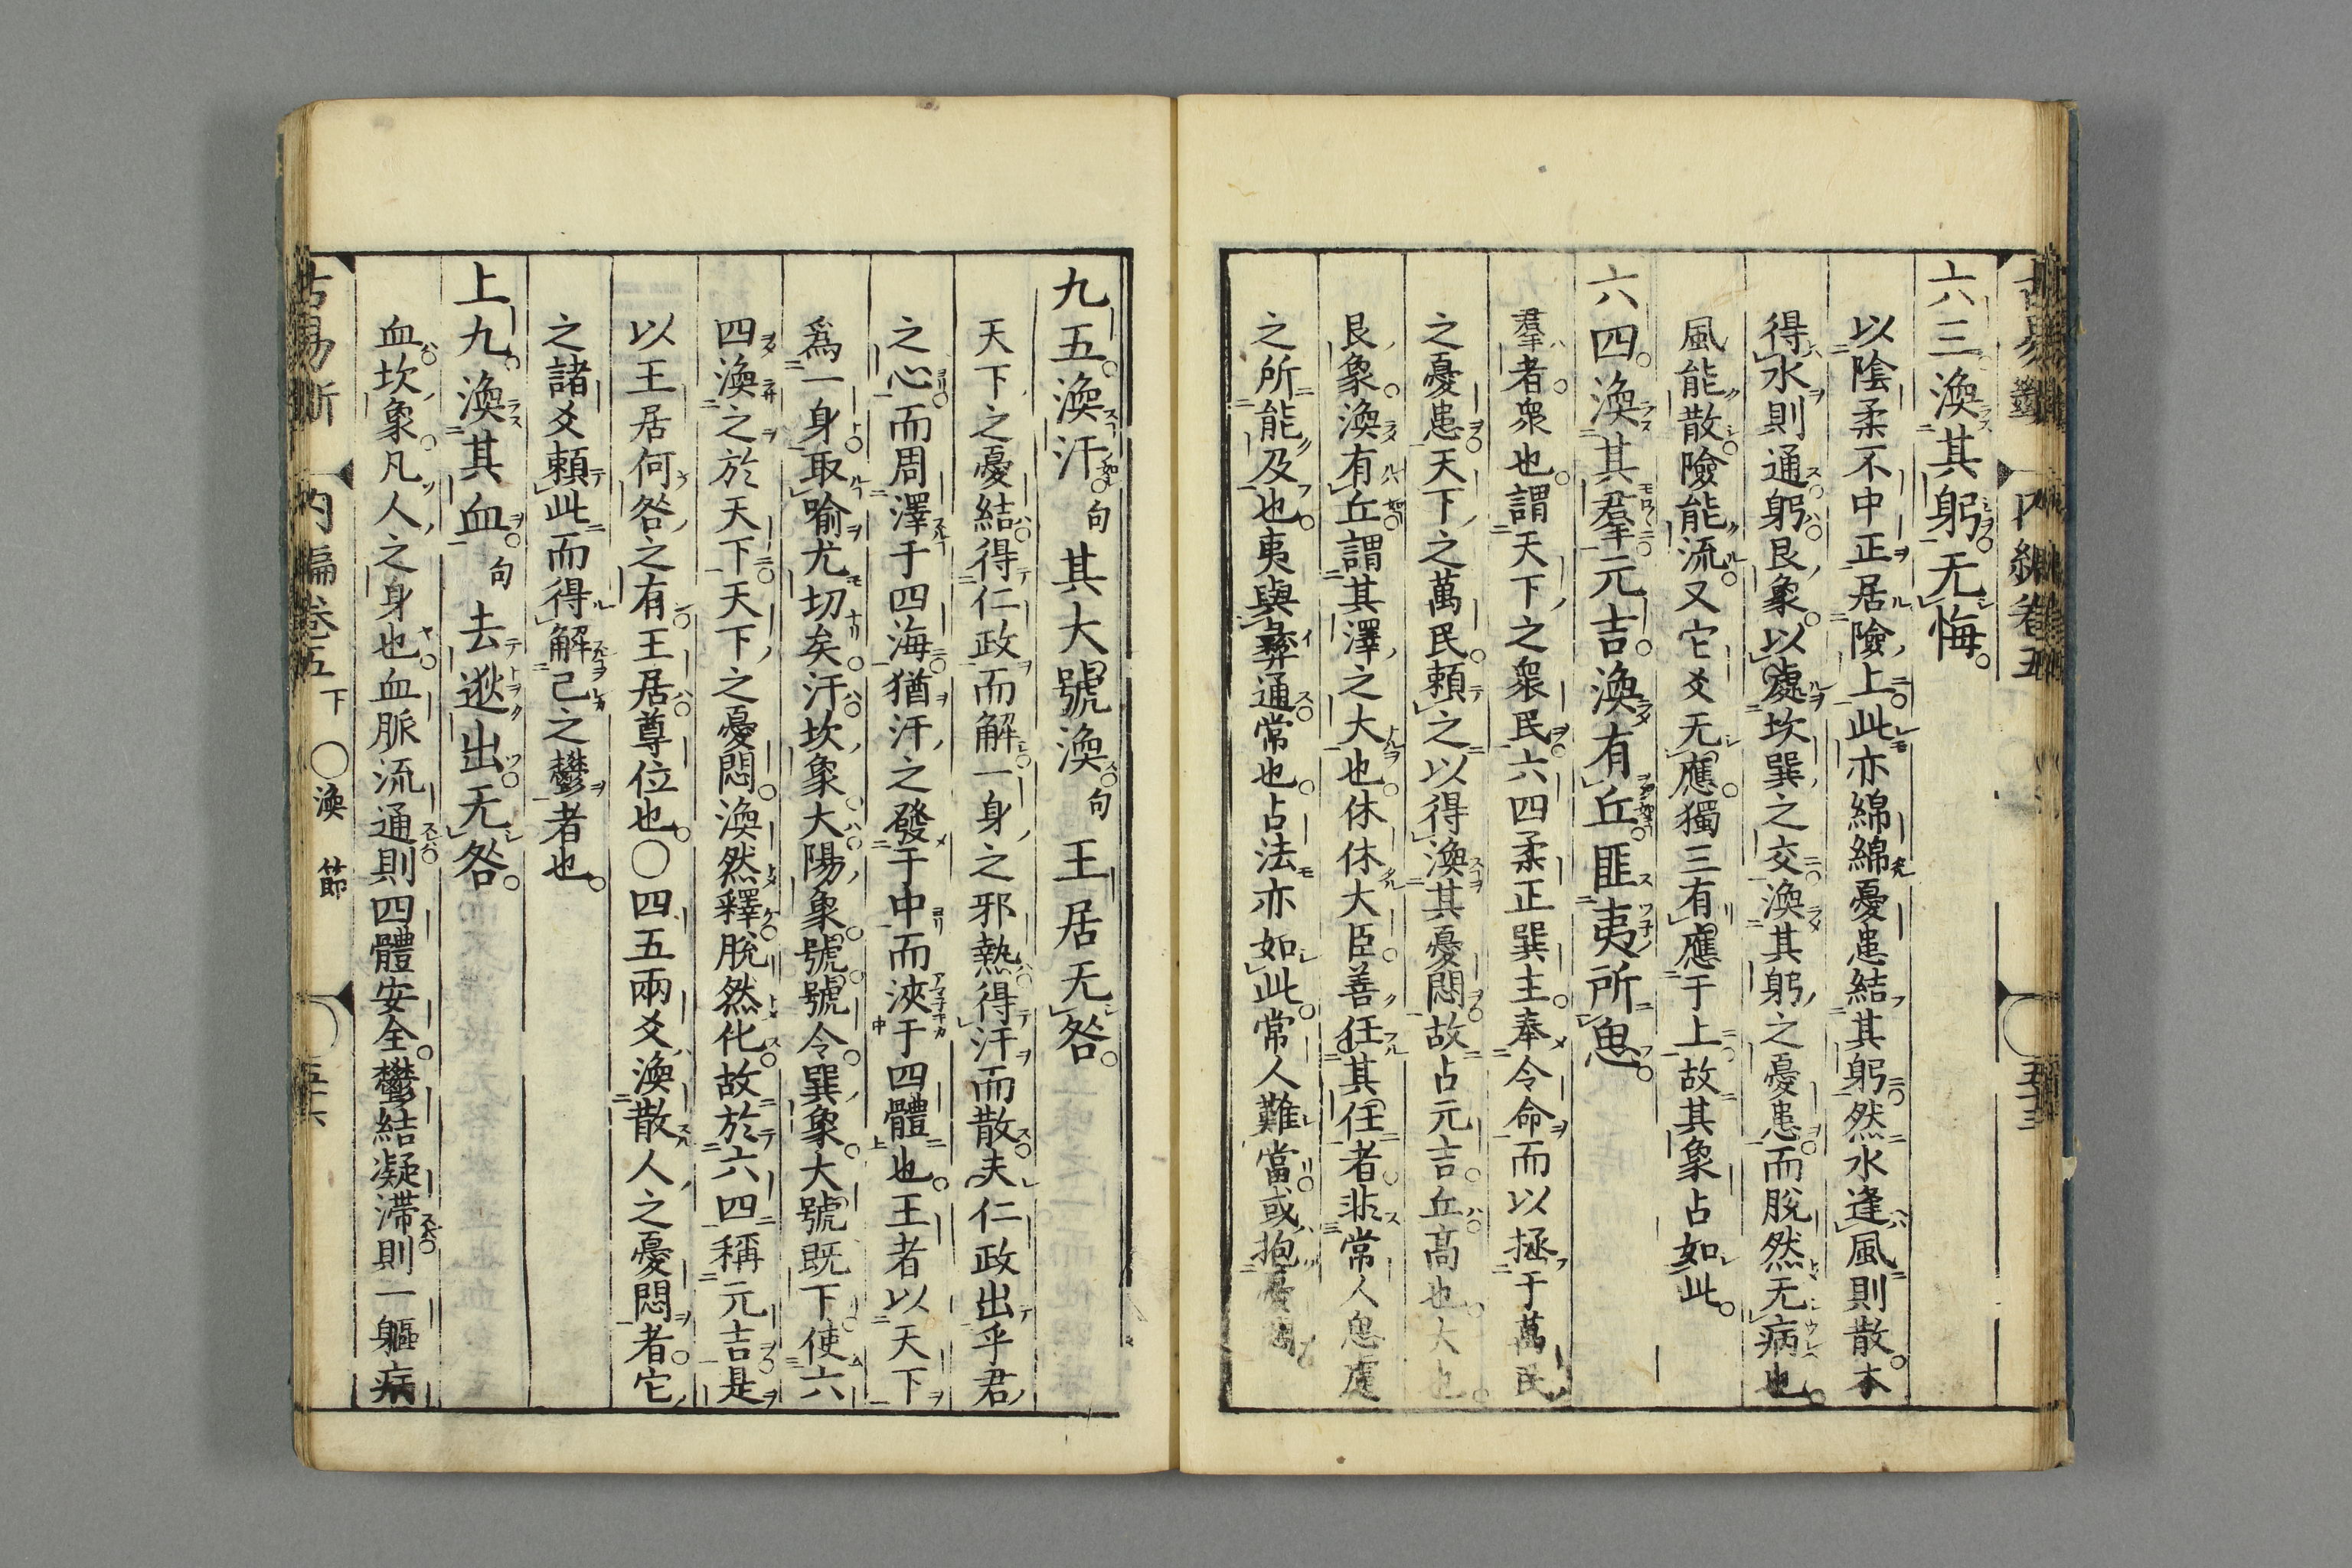 六三渙其躬无悔
以陰柔不中正居險上此亦綿綿憂患結其躬然水逢風則散本
得水則通躬艮象以處坎巽之交渙其躬之憂患而脫然无病也
風能散險能流又它爻无應獨三有應于上故其象占如此
六四渙其羣元吉渙有丘匪夷所思
羣者衆也謂天下之衆民六四柔正巽主奉令命而以拯于萬民
之憂患天下之萬民賴之以得渙其憂悶故占元吉丘高也大也
艮象渙有丘謂其澤之大也休休大臣善任其任者非常人思慮
之所能及也夷與彝通常也占法亦如此常人難當或抱憂
九五渙汗句其大號渙句王居无咎
天下之憂結得仁政而解一身之邪熱得汗而散夫仁政出乎君
之心而周澤于四海猶汗之發于中而浹于四體也王者以天下
爲一身取喻尤切矣汗坎象大陽象號號令巽象大號既下使六
四渙之於天下天下之憂悶渙然釋脫然化故於六四稱元吉是
以王居何咎之有王居尊位也○四五兩爻渙散人之憂悶者它
之諸爻賴此而得解己之鬱者也
上九渙其血句去逖出无咎
血坎象凡人之身也血脈流通則四體安全鬱結凝滯則一軀病
古易斷 內編卷五下 ○渙 節 五十六